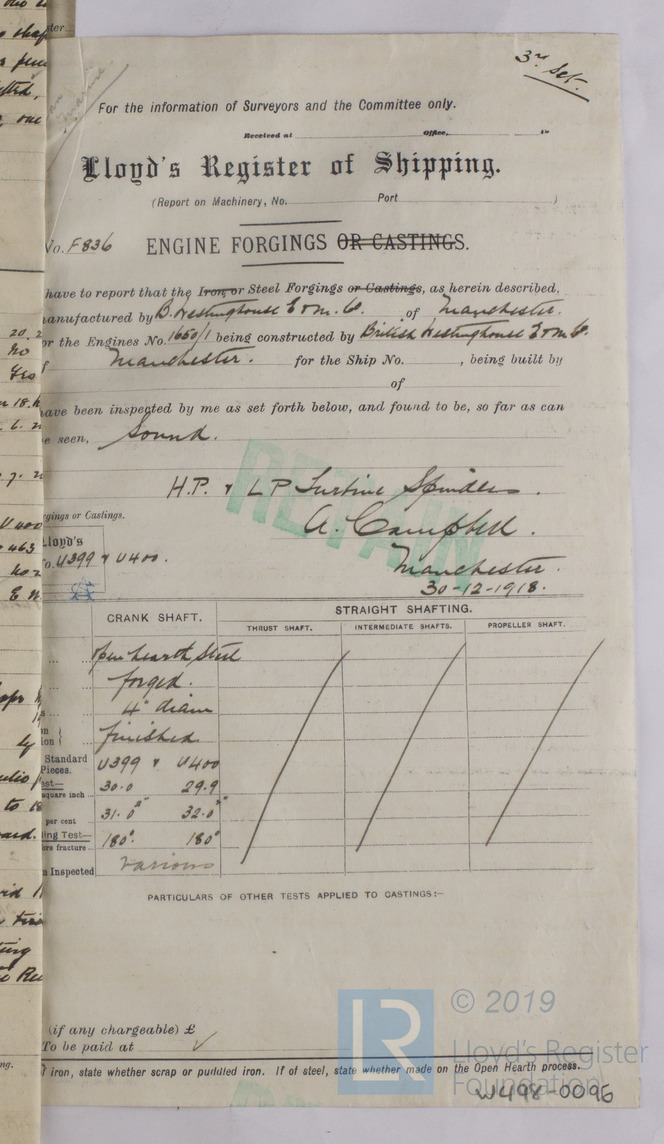 3rd Set.
For the information of Surveyors and the Committee only.
Received at Office, 19
Lloyd's Register of Shipping.
(Report on Machinery, No. Port )
No. F836 ENGINE FORGINGS OR CASTINGS.
have to report that the Iron, or Steel Forgings or Castings, as herein described,
manufactured by B. Westinghouse E & M. Co. of Manchester.
or the Engines No. 1650/1 being constructed by British Westinghouse E & M Co.
f Manchester. for the Ship No. , being built by
of
have been inspected by me as set forth below, and found to be, so far as can
e seen, Sound.
RETAIN
H.P. & L P Turbine Spindles.
rgings or Castings.
A. Campbell.
Lloyd's
o. U399 & U400.
Manchester.
30-12-1918.
CRANK SHAFT. STRAIGHT SHAFTING.
THRUST SHAFT. INTERMEDIATE SHAFTS. PROPELLER SHAFT.
open hearth Steel
forged.
4" diam
finished
Standard Pieces. U399 & U400
est— square inch 30.0 29.9
per cent 31.0 32.0
ing Test— ore fracture 180° 180°
n Inspected various
PARTICULARS OF OTHER TESTS APPLIED TO CASTINGS:—
(if any chargeable) £
To be paid at
f iron, state whether scrap or puddled iron. If of steel, state whether made on the Open Hearth process.
LR
© 2019
Lloyd's Register
Foundation
W498-0096